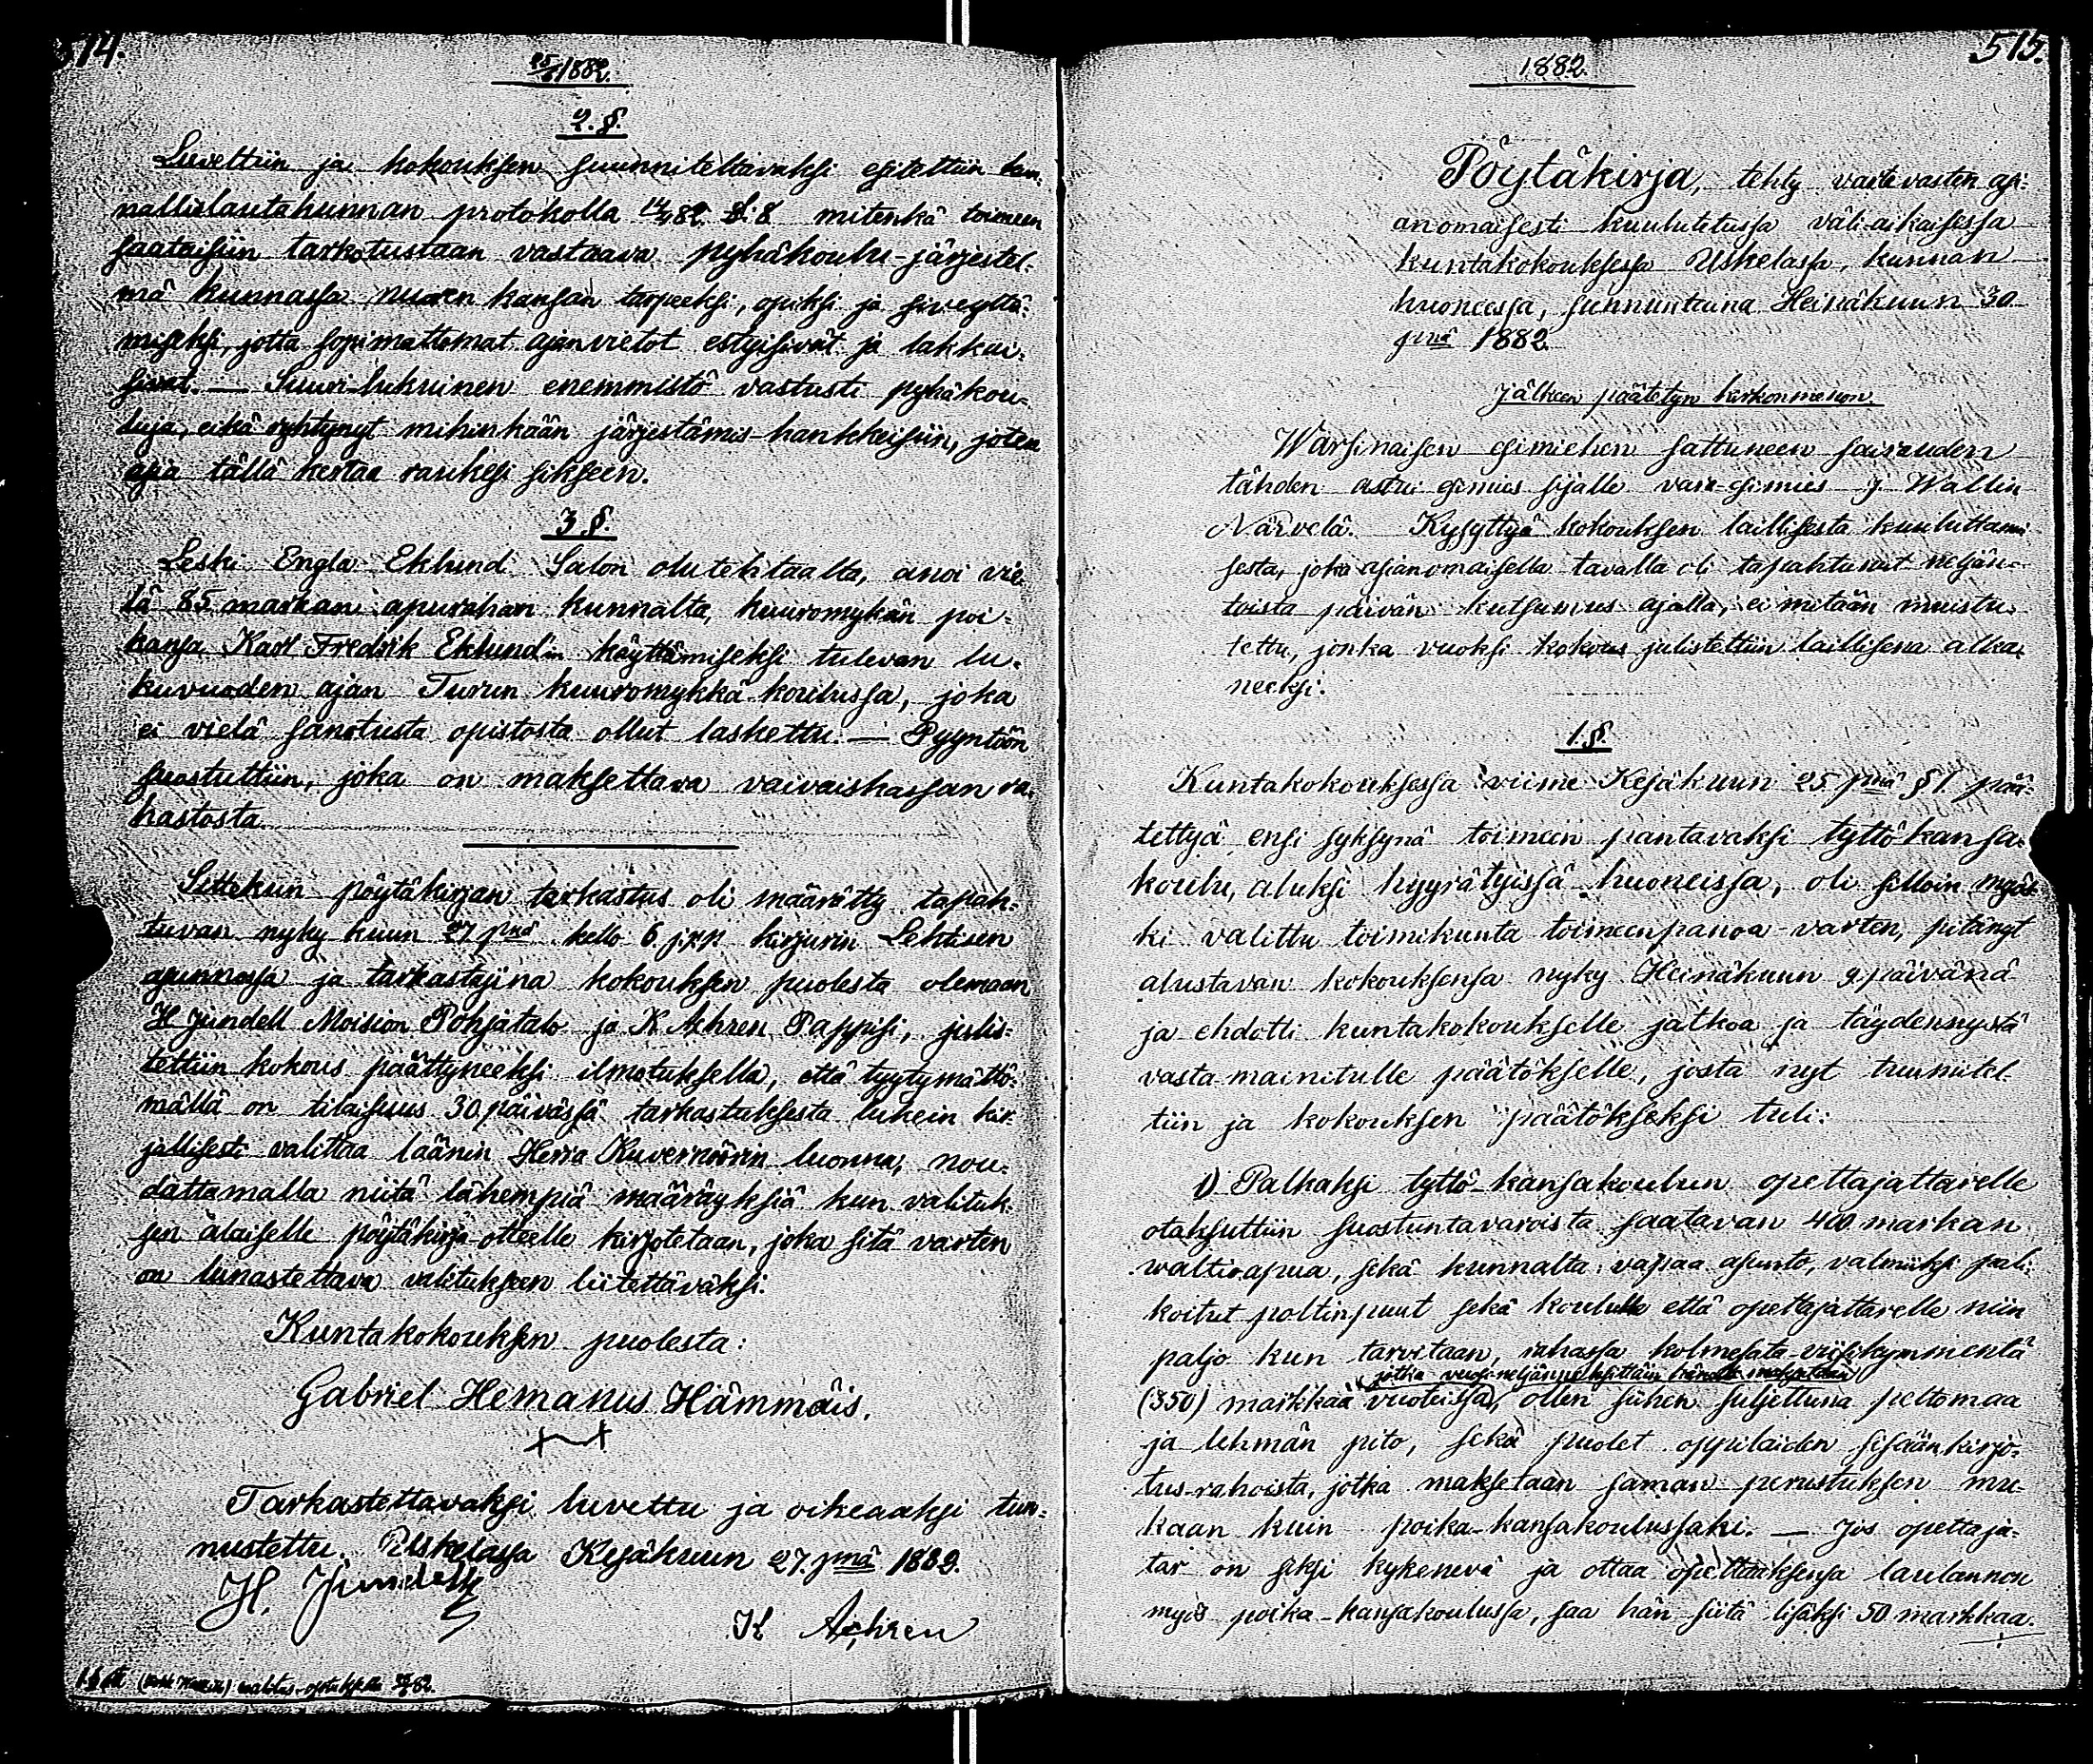 514.
25/6 1882.
2. §.
Luvettiin ja kokouksen suunniteltavaksi esitettiin kun-
nallislautakunnan protokolla 14/4 82 §. 8 mitenkä toimeen
saataisiin tarkotustaan vastaava pyhäkoulu-järjestel-
mä kunnassa nuoren kansan tarpeeksi, opiksi ja siveyttä-
miseksi, jotta sopimattomat ajanvietot estyisivät ja lakkai-
sivat. — Suuri-lukuinen enemmistö vastusti pyhäkou-
luja, eikä ryhtynyt mihinkään järjestämis-hankkeisiin, joten
asia tällä kertaa raukesi sikseen.
3 §.
Leski Engla Eklund Salon olutehtaalta, anoi vie-
lä 85 markan apurahan kunnalta, kuuromykän poi-
kansa Karl Fredrik Eklund'in käyttämiseksi tulevan lu-
kuvuoden ajan Turun kuuromykkä-koulussa, joka
ei vielä sanotusta opistosta ollut laskettu. — Pyyntöön
suostuttiin, joka on maksettava vaivaiskassan ra-
hastosta.
Sittekuin pöytäkirjan tarkastus oli määrätty tapah-
tuvan nyky kuun 27 pnä kello 6 j.pp kirjurin Lehtisen
asunnossa ja tarkastajina kokouksen puolesta olemaan
H Jundell Moision Pohjatalo ja K Achren Pappisi, julis-
tettiin kokous päättyneeksi ilmotuksella, että tyytymättö-
mällä on tilaisuus 30 päivässä tarkastuksesta lukein kir-
jallisesti valittaa läänin Herra Kuvernöörin luonna, nou-
dattamalla niitä lähempiä määräyksiä kun valituk-
sen alaiselle pöytäkirja-otteelle kirjotetaan, joka sitä varten
on lunastettava valitukseen liitettäväksi.
Kuntakokouksen puolesta:
Gabriel Hemanus Hämmäis.
Tarkastettavaksi luvettu ja oikeaaksi tun-
nustettu. Uskelassa Kesäkuun 27. pnä 1882.
H. Jundell
K Achren
1882.
515.
Pöytäkirja, tehty vastevasten asi-
anomaisesti kuulutetussa väli-aikaisessa
kuntakokouksessa Uskelassa, kunnan
huoneessa, sunnuntaina Heinäkuun 30
pnä 1882.
Jälkeen päätetyn kirkonmenon.
Warsinaisen esimiehen sattuneen sairauden
tähden astui esimies sijalle vara-esimies J. Wallin
Närvelä. Kysyttyä kokouksen laillisesta kuuluttami-
sesta, joka asianomaisella tavalla oli tapahtunut neljän-
toista päivän kutsumus ajalla, ei mitään muistu-
tettu, jonka vuoksi kokous julistettiin laillisena alka-
neeksi.
1.§.
Kuntakokouksessa viime Kesäkuun 25 pnä §1 pää-
tettyä ensi syksynä toimeen pantavaksi tyttö-kansa-
koulu, aluksi hyyrätyissä huoneissa, oli silloin myös-
ki valittu toimikunta toimeenpanoa varten, pitänyt
alustavan kokouksensa nyky Heinäkuun 9 päivänä
ja ehdotti kuntakokoukselle jatkoa ja täydennystä
vasta mainitulle päätökselle, josta nyt tuumitel-
tiin ja kokouksen päätökseksi tuli:
1) Palkaksi tyttö-kansakoulun opettajattarelle
otaksuttiin suostuntavaroista saatavan 400 markan
waltioapua, sekä kunnalta: vapaa asunto, valmiiksi pali-
koitut polttinpuut sekä koululle että opettajattarelle niin
paljo kun tarvitaan, rahassa kolmesata-viisikymmentä
(jotka vuosi-neljännyksittäin hänelle maksetaan)
(350) markkaa vuoteissa, ollen siihen suljettuna peltomaa
ja lehmän pito, sekä puolet oppilaiden sisäänkirjo-
tus-rahoista, jotka maksetaan saman perustuksen mu-
kaan kuin poika-kansakoulussaki. — Jos opettaja-
tar on siksi kykenevä ja ottaa opettaaksensa laulannon
myös poika-kansakoulussa, saa hän siitä lisäksi 50 markkaa.